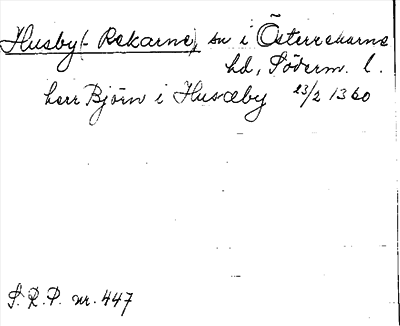 Husby(-Rekarne), sn i Österrekarne
hd, Söderm. l.
herr Björn i Husæby 23/2 1360
S.R.P. nr. 447